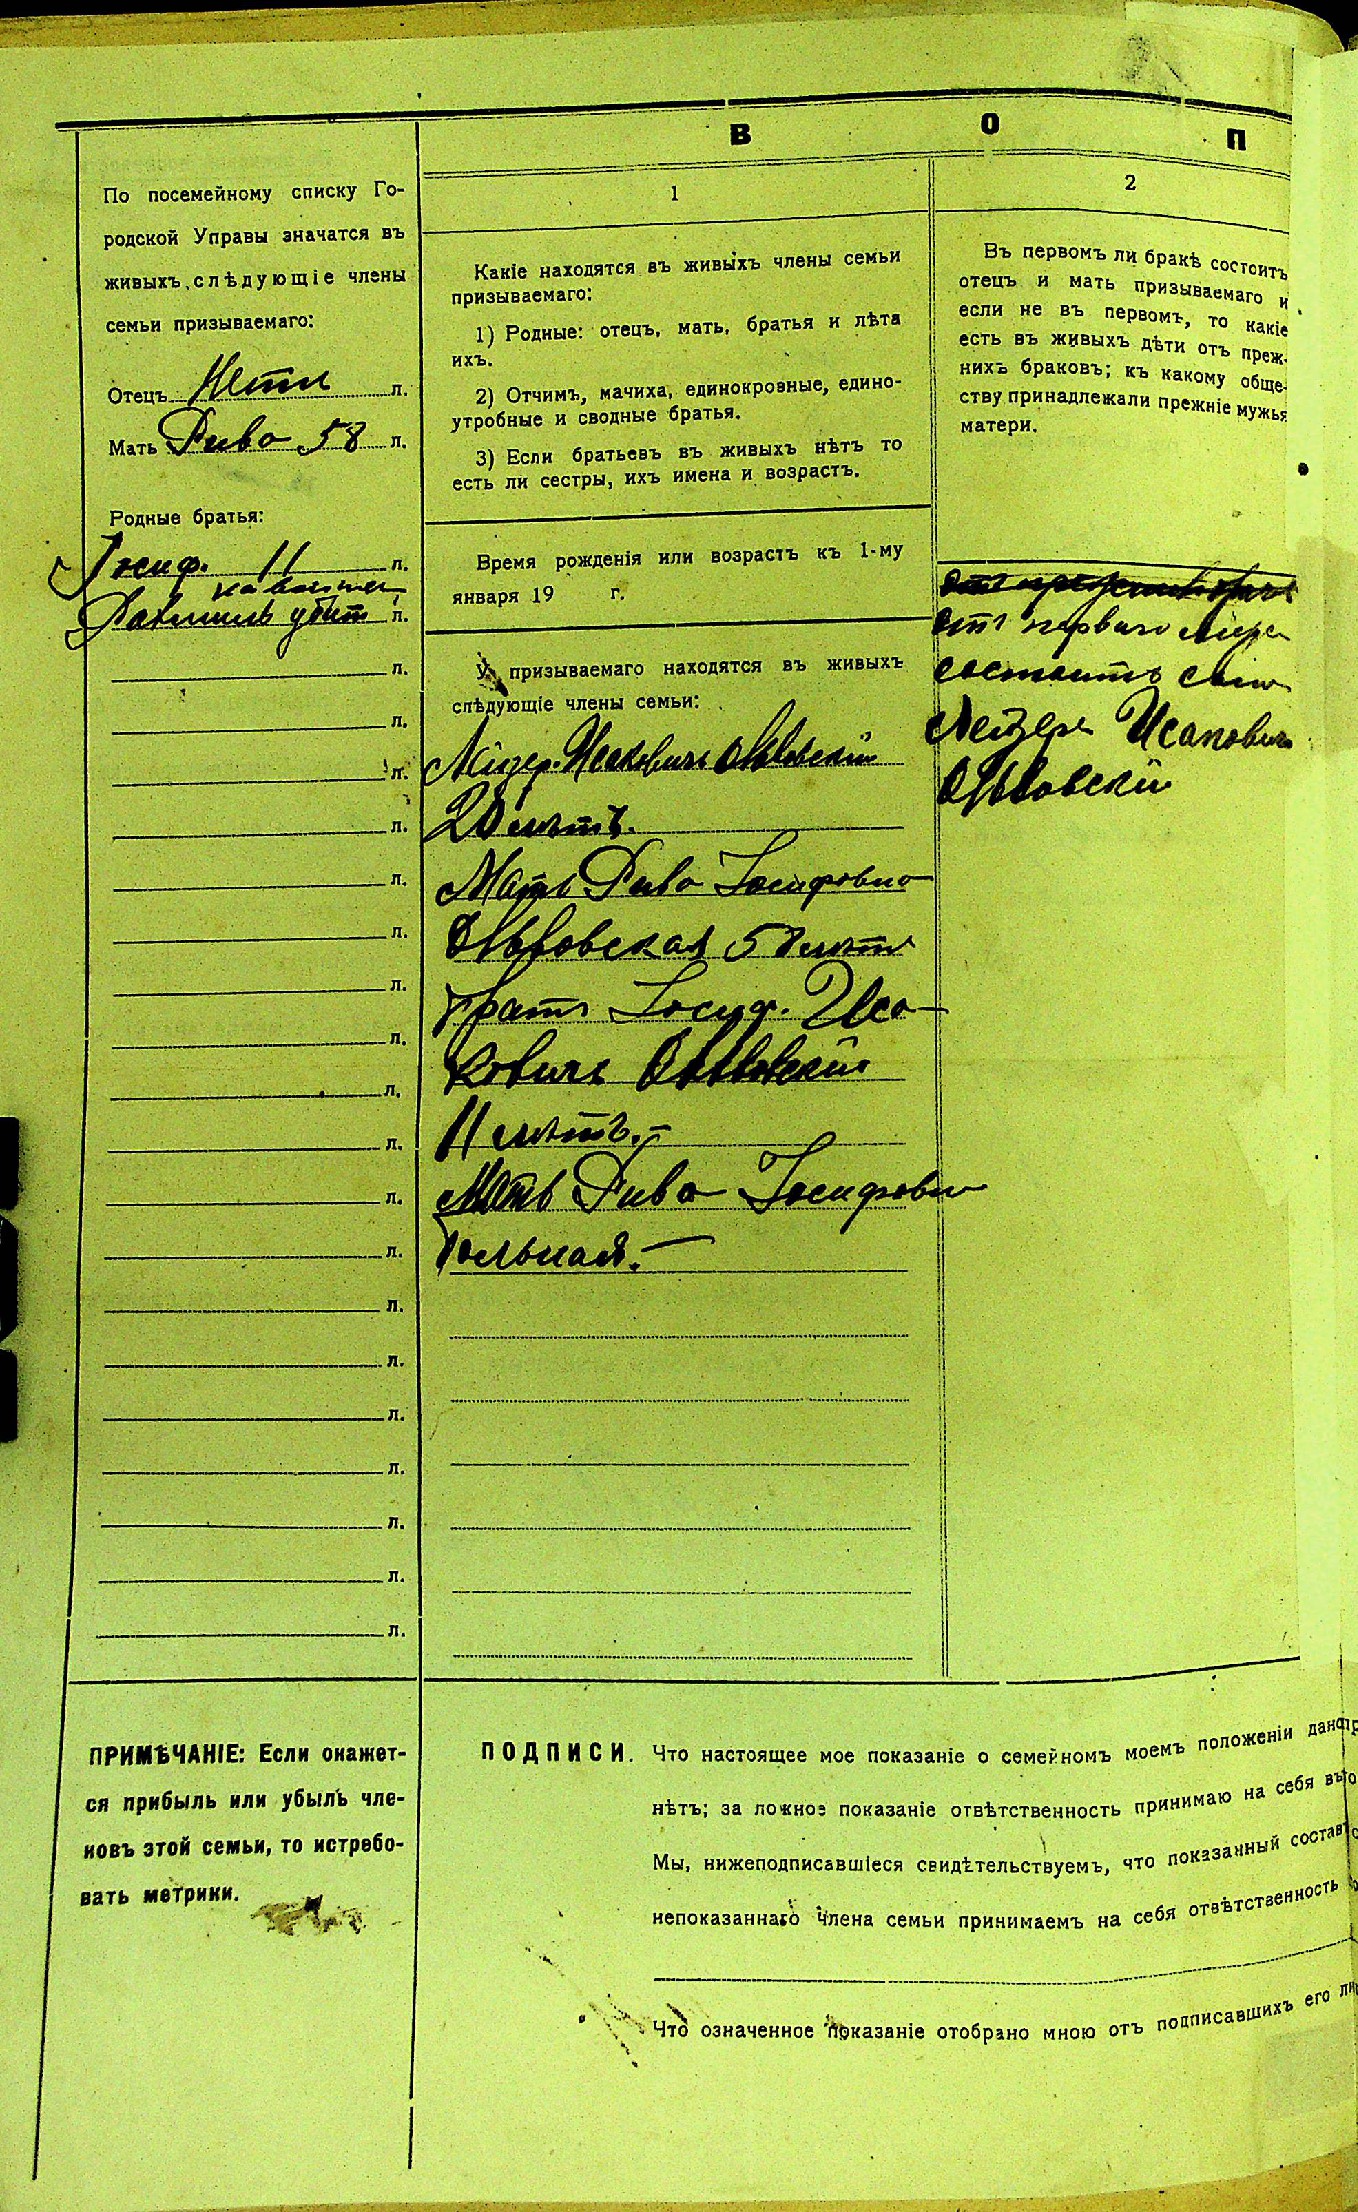 В О П
По посемейному списку Го-
родской Управы значатся въ
живыхъ слѣдующіе члены
семьи призываемаго:
Отецъ Нетъ л.
Мать Рива 58 л.
Родные братья:
Іосиф. 11 л.
на войнѣ
убит л.
л.
л.
л.
л.
л.
л.
л.
л.
л.
л.
л.
л.
л.
л.
л.
л.
л.
л.
л.
ПРИМѢЧАНІЕ: Если окажет-
ся прибыль или убыль чле-
новъ этой семьи, то истребо-
вать метрики.
1
Какіе находятся въ живыхъ члены семьи
призываемаго:
1) Родные: отецъ, мать, братья и лѣта
ихъ.
2) Отчимъ, мачиха, единокровные, едино-
утробные и сводные братья.
3) Если братьевъ въ живыхъ нѣтъ то
есть ли сестры, ихъ имена и возрастъ.
Время рожденія или возрастъ къ 1-му
января 19 г.
У призываемаго находятся въ живыхъ
слѣдующіе члены семьи:
Лейзер Исаковичъ
20 лѣтъ.
Мать Рива Іосифовна
58 лѣтъ
братъ Іосиф. Иса-
ковичъ
11 лѣтъ.-
Мать Рива Іосифовна
больная.-
2
Въ первомъ ли бракѣ состоитъ
отецъ и мать призываемаго и
если не въ первомъ, то какіе
есть въ живыхъ дѣти отъ преж-
нихъ браковъ; къ какому обще-
ству принадлежали прежніе мужья
матери.
Отъ перваго
состоитъ сынъ
Лейзеръ Исаковичъ
ПОДПИСИ. Что настоящее мое показаніе о семейномъ моемъ положеніи дано
нѣтъ; за ложное показаніе отвѣтственность принимаю на себя въ
Мы, нижеподписавшіеся свидѣтельствуемъ, что показанный составъ
непоказаннаго члена семьи принимаемъ на себя отвѣтственность
Что означенное показаніе отобрано мною отъ подписавшихъ его